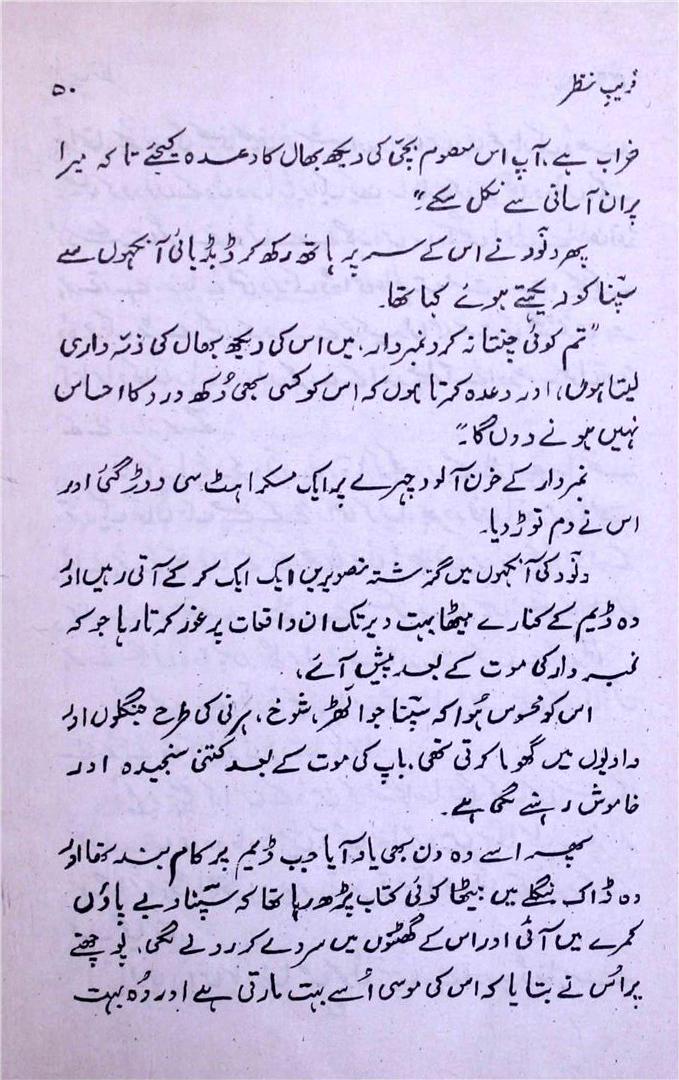 فریبِ نظر
۵۰
خراب ہے، آپ اس معصوم بچی کی دیکھ بھال کا وعدہ کیجئے تاکہ میرا
پران آسانی سے نکل سکے۔"
پھر ونود نے اس کے سر پر ہاتھ رکھ کر ڈبڈبائی آنکھوں سے
سپنا کو دیکھتے ہوئے کہا تھا۔
"تم کوئی چنتا نہ کرو نمبردار، میں اس کی دیکھ بھال کی ذمّہ داری
لیتا ہوں، اور وعدہ کرتا ہوں کہ اس کو کسی بھی دُکھ درد کا احساس
نہیں ہونے دوں گا۔"
نمبردار کے خون آلود چہرے پر ایک مسکراہٹ سی دوڑ گئی اور
اس نے دم توڑ دیا۔
ونود کی آنکھوں میں گزشتہ تصویریں ایک ایک کر کے آتی رہیں اور
وہ ڈیم کے کنارے بیٹھا بہت دیر تک ان واقعات پر غور کرتا رہا جو کہ
نمبردار کی موت کے بعد پیش آئے،
اس کو محسوس ہُوا کہ سپنا جو الھڑ، شوخ، ہرنی کی طرح جنگلوں اور
وادیوں میں گھوما کرتی تھی، باپ کی موت کے بعد کتنی سنجیدہ اور
خاموش رہنے لگی ہے۔
پھر اسے وہ دن بھی یاد آیا جب ڈیم پر کام بند تھا اور
وہ ڈاک بنگلے میں بیٹھا کوئی کتاب پڑھ رہا تھا کہ سپنا دبے پاؤں
کمرے میں آئی اور اس کے گھٹنوں میں سر دے کر رونے لگی، پوچھنے
پر اُس نے بتایا کہ اس کی موسی اُسے بہت مارتی ہے اور وُہ بہت